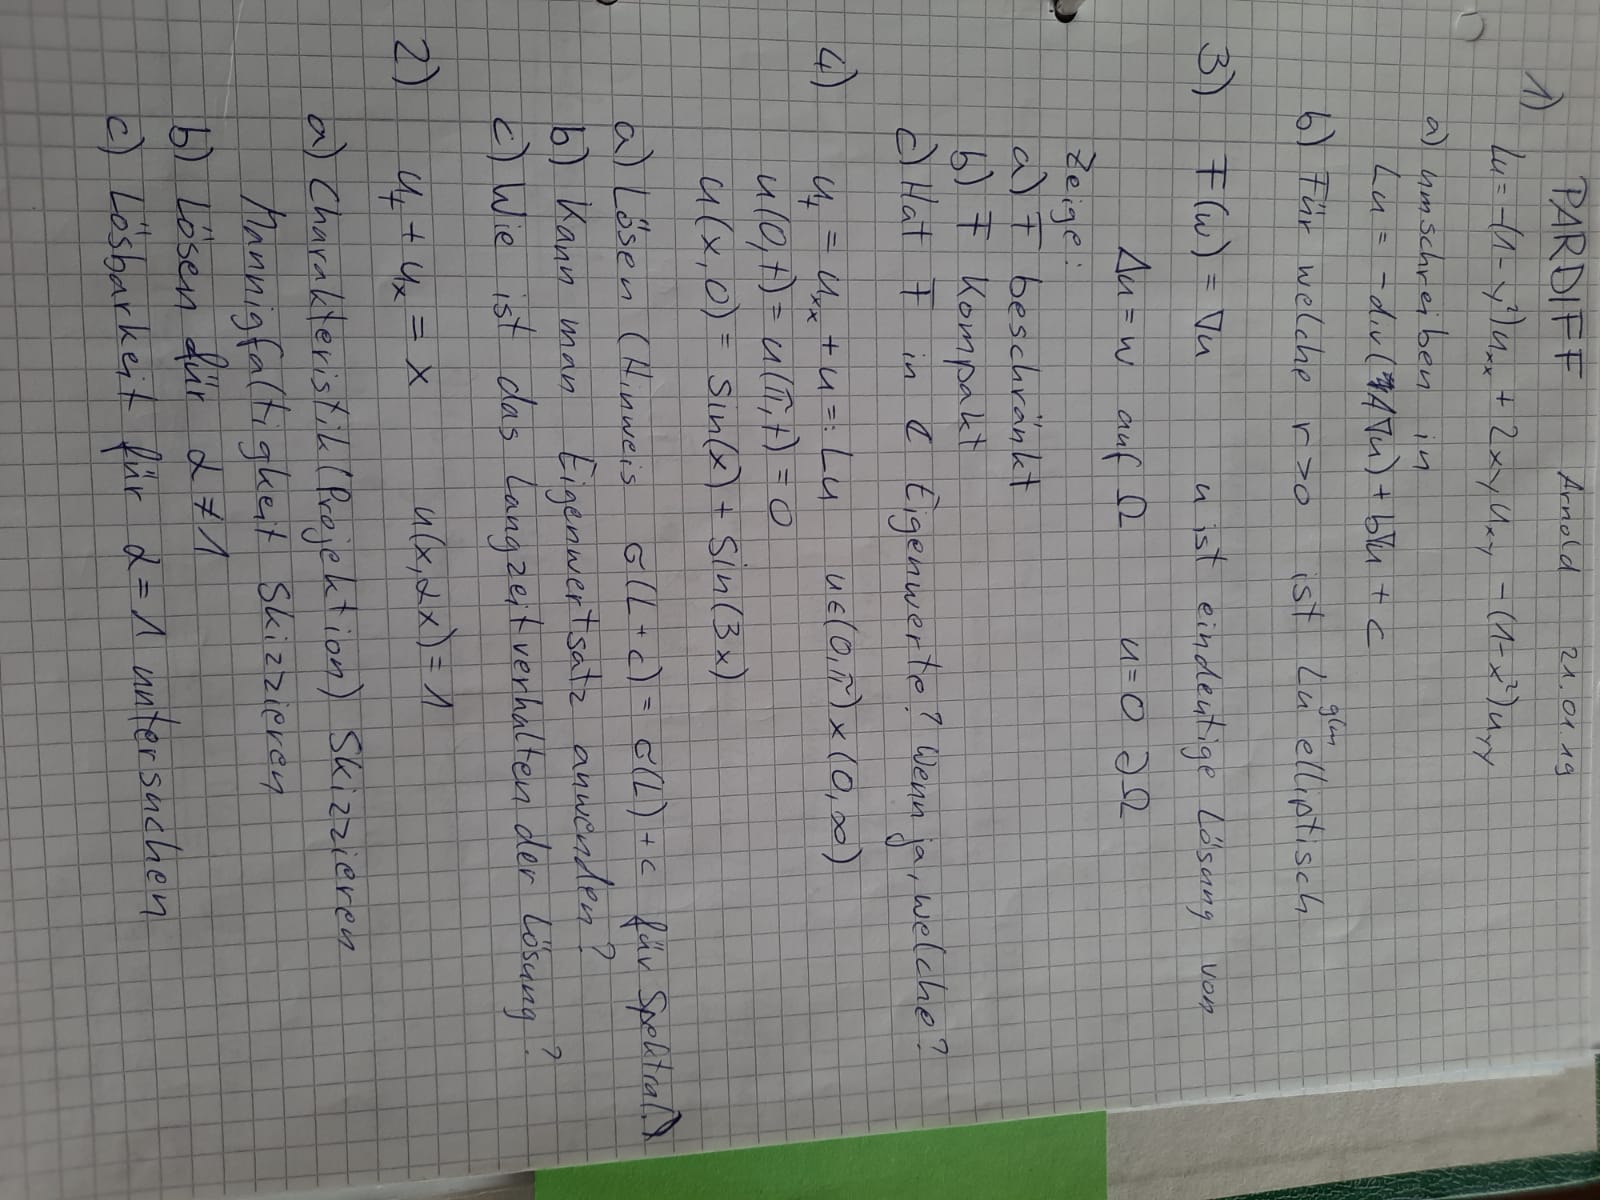 PARDIFF Arnold 21.01.19
1)
Lu = -(1-y²)u_xx + 2xy u_xy - (1-x²)u_yy
a) umschreiben in
Lu = -div(A∇u) + b∇u + c
b) Für welche r>0 ist Lu glm elliptisch
3) F(w) = ∇u u ist eindeutige Lösung von
Δu = w auf Ω u=0 ∂Ω
Zeige:
a) F beschränkt
b) F Kompakt
c) Hat F in ℂ Eigenwerte? Wenn ja, welche?
4) u_t = u_xx + u =: Lu u∈(0,π)×(0,∞)
u(0,t) = u(π,t) = 0
u(x,0) = sin(x) + sin(3x)
a) Lösen (Hinweis σ(L+c) = σ(L)+c für Spektral.)
b) Kann man Eigenwertsatz anwenden?
c) Wie ist das Langzeitverhalten der Lösung?
2) u_t + u_x = x u(x,αx) = 1
a) Charakteristik (Projektion) Skizzieren
Mannigfaltigkeit Skizzieren
b) Lösen für α ≠ 1
c) Lösbarkeit für α = 1 untersuchen